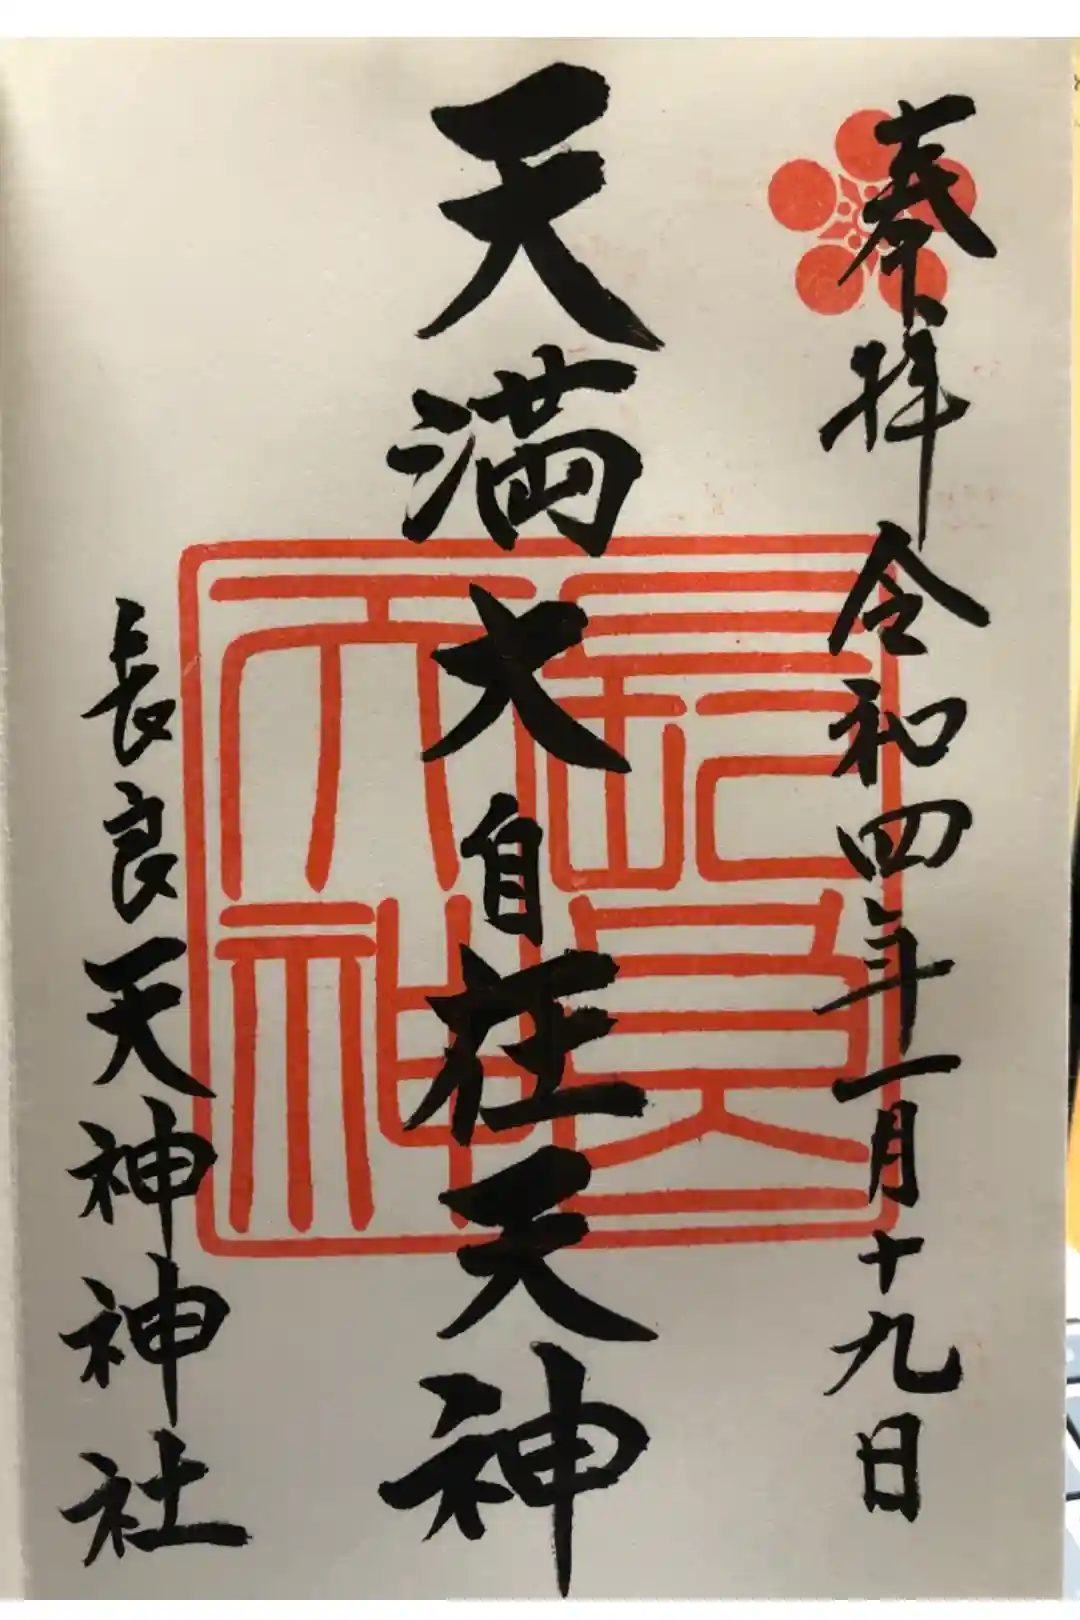 奉拝 令和四年一月十九日
天満大自在天神
長良天神神社
長良
天神